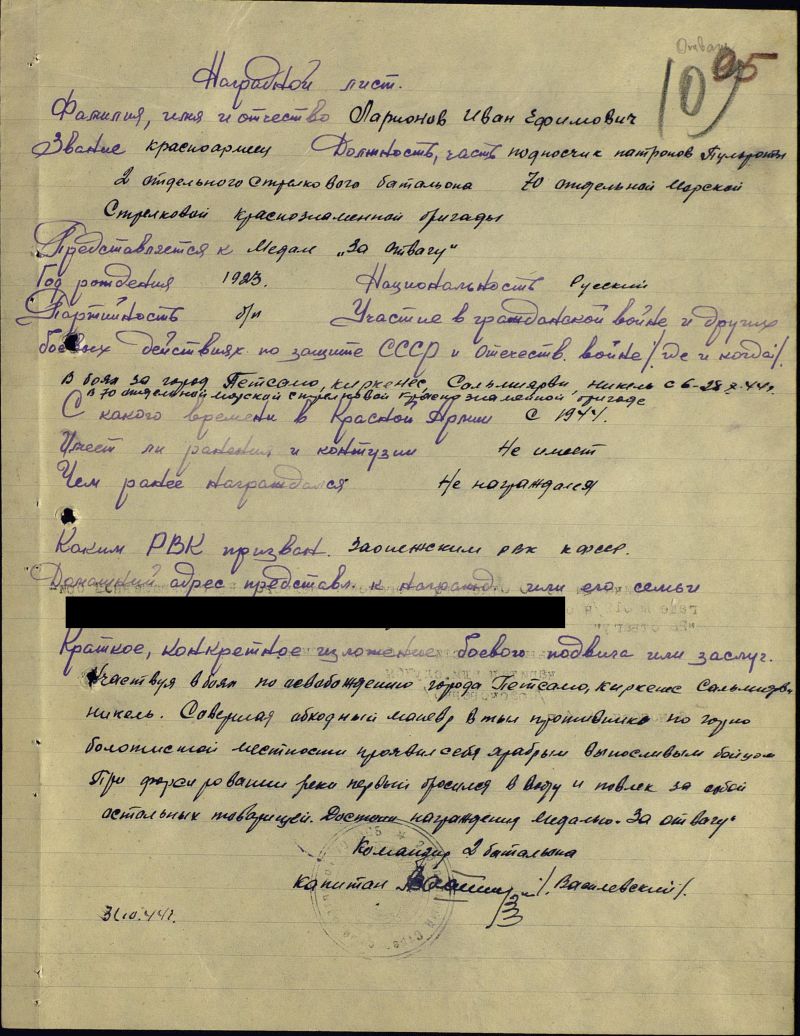 Отвага
10 95
Наградной лист.
Фамилия, имя и отчество Ларионов Иван Ефимович
Звание красноармеец Должность, часть подносчик патронов Пульроты
2 отдельного стрелкового батальона 70 отдельной Морской
Стрелковой краснознаменной бригады
Представляется к Медали „За отвагу"
Год рождения 1923. Национальность Русский
Партийность б/п Участие в гражданской войне и других
боевых действиях по защите СССР и отечеств. войне/. где и когда/.
В боях за город Петсамо, Киркенес, Сальмиярви, Никель с 6-28.X-44г.
В 70 отдельной морской стрелковой краснознаменной бригаде
С какого времени в Красной Армии с 1944.
Имеет ли ранения и контузии Не имеет
Чем ранее награждался Не награждался
Каким РВК призван. Заонежским РВК КФССР.
Домашний адрес представл. к награжд. или его семьи
Краткое, конкретное изложение боевого подвига или заслуг.
Участвуя в боях по освобождению города Петсамо, Киркенес Сальмиярви
Никель. Совершая обходный маневр в тыл противника по горно
болотистой местности проявил себя храбрым выносливым бойцом
При форсировании реки первый бросился в воду и повлек за собой
остальных товарищей. Достоин награждения Медалью „За отвагу"
Командир 2 батальона
капитан /. Василевский/.
31.10.44г.